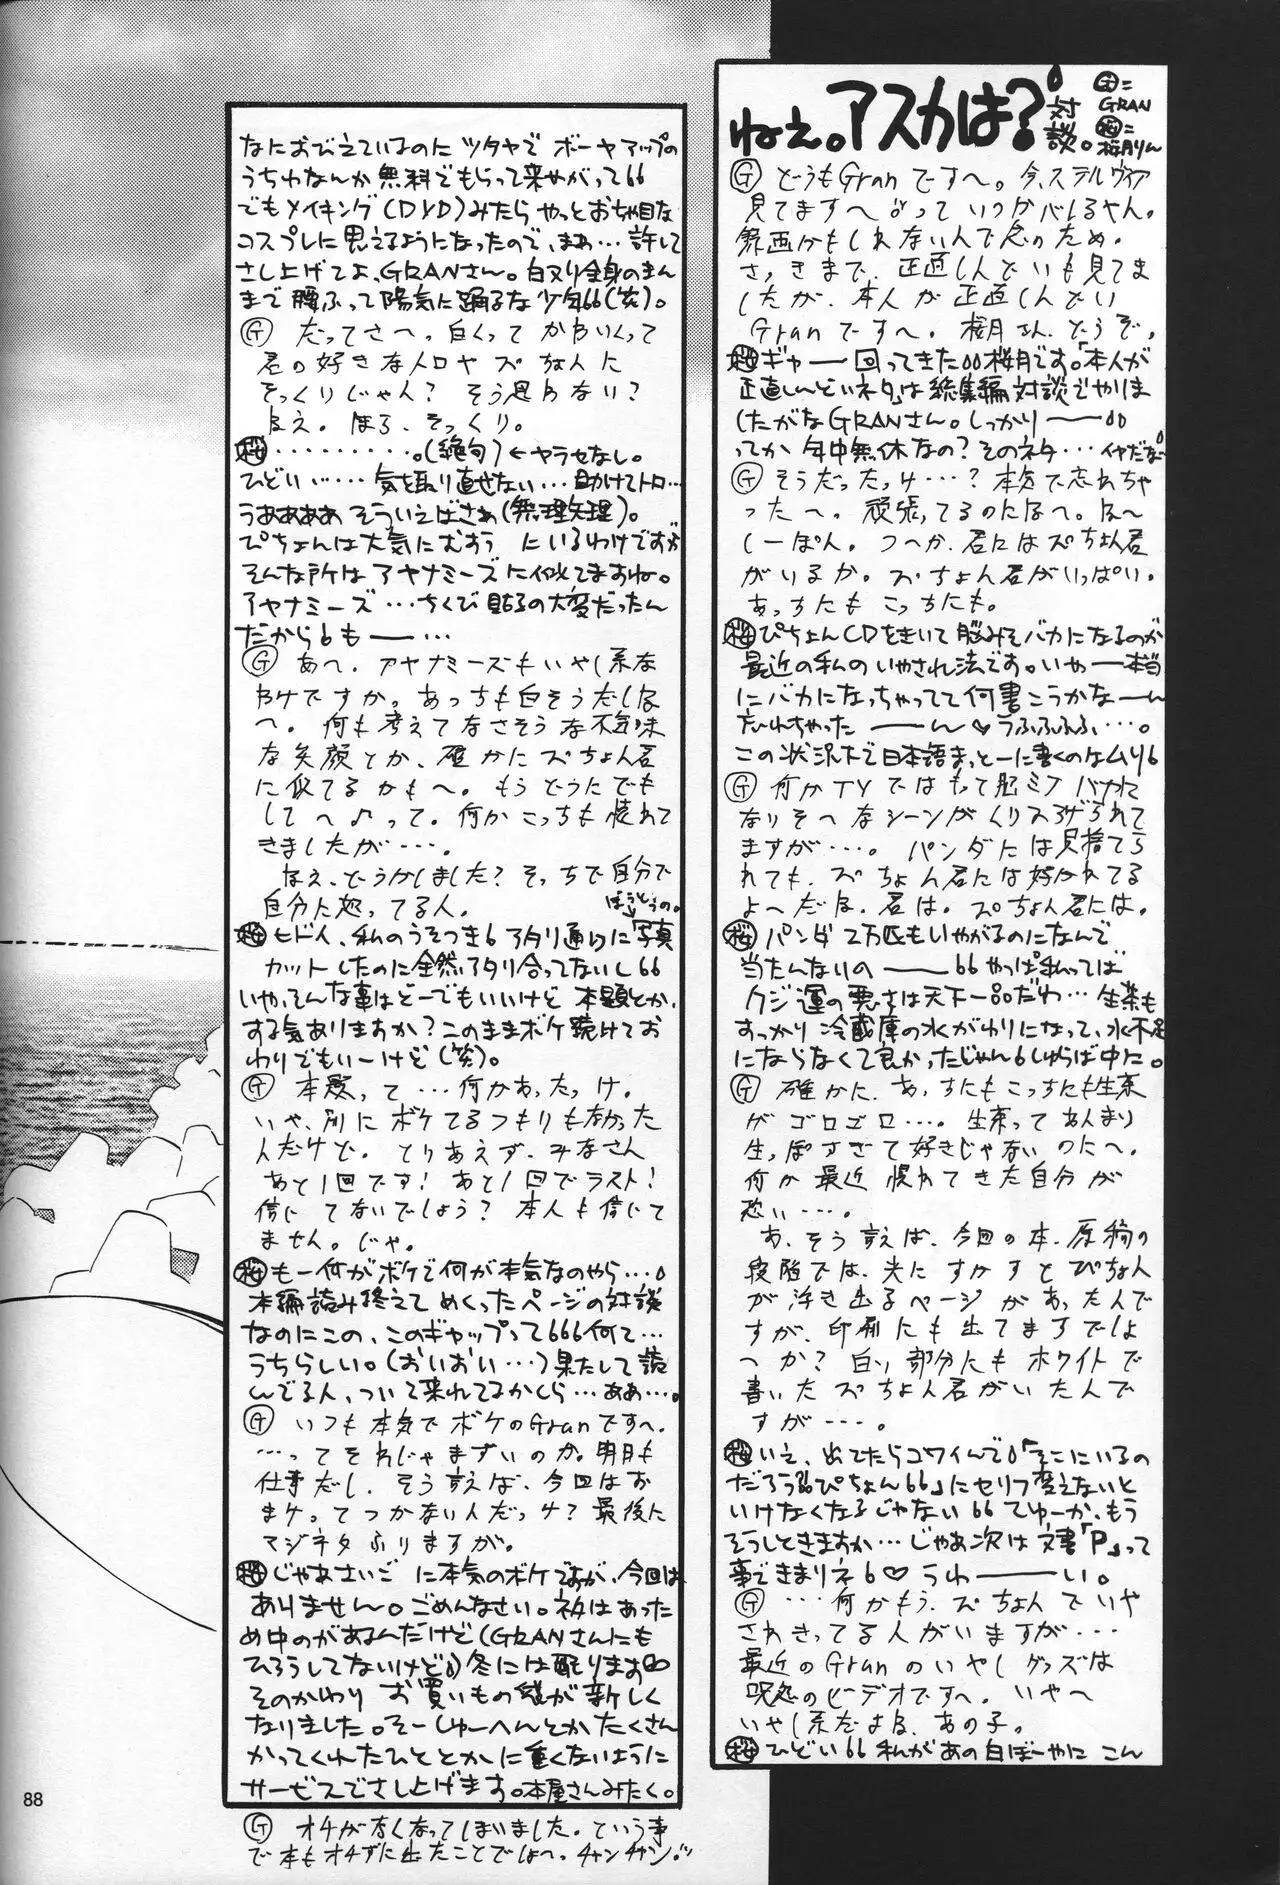 ねえ。アスカは?
対談。
G=
GRAN
桜=
桜月りん
G どうもGranですへ。今、ステルヴィア
見てますへ
録画かもしれないんで念のため。
さっきまで、正直しんどいも見てま
したが、本人が正直しんどい
Granですへ。桜月さん、どうぞ。
桜 ギャー 回ってきた 桜月です。「本人が
正直しんどいネタ」は総集編対談でやりま
したがなGRANさん。しっかりーー
ってか年中無休なの?そのネタ…イヤだな
G そうだったっけ…?本気で忘れちゃ
ったへ。頑張ってるのになへ。な〜
しーぽん。つへか、君にはぴちょん君
がいるか。ぴちょん君がいっぱい。
あっちにもこっちにも。
桜 ぴちょんCDをきいて脳みそバカになるのが
最近の私のいやされ法です。いやー本当
にバカになっちゃってて何書こうかなーん
忘れちゃったーーん♡うふふふふ…。
この状況下で日本語まっとーに書くのなんムリ
G 何かTVではもって脳ミソバカに
なりそへなシーンがくり広げられて
ますが…。パンダには見捨てら
れても、ぴちょん君には好かれてる
よへだな、君は。ぴちょん君には。
桜 パンダ2万匹もいやがるのになんで
当たんないのーー やっぱ私ってば
クジ運の悪さは天下一品だわ…生茶も
すっかり冷蔵庫の水がわりになって、水不足
にならなくて良かったじゃん しゅらば中に。
G 確かに、あっちにもこっちにも生茶
がゴロゴロ…。生茶ってあんまり
生っぽすぎて好きじゃないのにへ。
何か最近慣れてきた自分が
恐い…。
あ、そう言えば、今回の本、原稿の
段階では、光にすかすとぴちょん
が浮き出るページがあったんで
すが、印刷にも出てますでしょ
へか?白い部分にもホワイトで
書いたぴちょん君がいたんで
すが…。
桜 いえ、出てたらコワイんで「そこにいるの
だろうぴちょん」にセリフ変えないと
いけなくなるじゃない てゆーか、もう
そうしときますか…じゃあ次は文書「P」って
事できまりネ♡うわーーい。
G …何かもう、ぴちょんでいや
されきってる人がいますが…
最近のGranのいやしグッズは
呪怨のビデオですへ。いやへ
いやし系だよな、あの子。
桜 ひどい 私があの白ぼーやにこん
なにおびえているのにツタヤでボーヤアップの
うちわなんか無料でもらって来やがって
でもメイキング(DVD)みたらやっとおちゃ目な
コスプレに思えるようになったので、まあ…許して
さし上げてよ、GRANさん。白ヌリ全身のまん
まで腰ふって陽気に踊るな少年(笑)。
G だってさへ、白くってかわいくって
君の好きな人ロやぴちょんに
そっくりじゃん?そう思わない?
なえ。ほら、そっくり。
桜 ………。(絶句)←ヤラセなし。
ひどい…気を取り直せない…助けてトロ…
うああああ そういえばさぁ(無理矢理)。
ぴちょんは大気にむおう にいるわけですが
そんな所はアヤナミーズに似てますね。
アヤナミーズ…ちくび貼るの大変だったん
だから もーー…
G あへ、アヤナミーズもいやし系な
ワケですか。あっちも白そうだしな
へ。何も考えてなさそうな不気味
な笑顔とか、確かにぴちょん君
に似てるかもへ。もうどうにでも
してへ♪って。何かこっちも慣れて
きましたが…。
なえ、どうかしました?そっちで自分で
自分に怒ってる人。
桜 ヒドイ、私のうそつき アタリ通りに「写真
カット」したのに全然アタリ合ってないし
いや、そんな事はどーでもいいけど本題とか、
する気ありますか?このままボケ続けてお
わりでもいーけど(笑)。
G 本題って…何かあったっけ。
いや、別にボケてるつもりも無かった
んだけど。とりあえず、みなさん
あと1回です!あと1回でラスト!
信じてないでしょう?本人も信じて
ません。じゃ。
桜 もー何がボケで何が本気なのやら…
本編読み終えてめくったページの対談
なのにこの、このギャップって 何て…
うちらしい。(おいおい…)果たして読
んでる人、ついて来れてるかしら…ああ…。
G いつも本気でボケのGranですへ。
…ってそれじゃまずいのか。明日も
仕事だし。そう言えば、今回はお
まけってつかないんだっけ?最後に
マジネタふりますが。
桜 じゃあさいごに本気のボケですが、今回は
ありません。ごめんなさい。ネタはあった
め中のがあるんだけど(GRANさんにも
ひろうしてないけど)冬には配ります
そのかわりお買いもの袋が新しく
なりました。そーしゅーへんとかたくさん
かってくれたひととかに重くないように
サービスでさし上げます。本屋さんみたく。
G オチがなくなってしまいました。という事
で本もオチずに出たことでしょへ。チャンチャン。
88